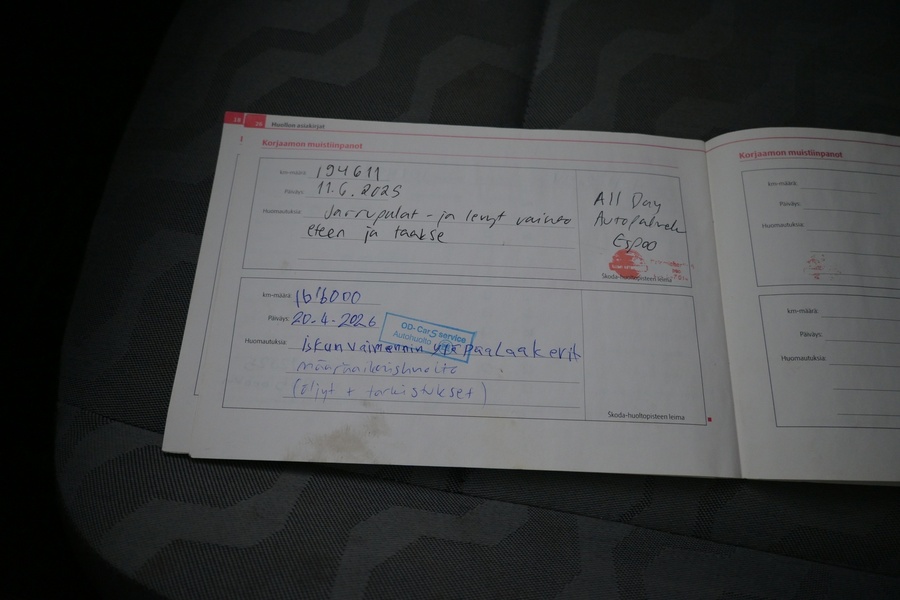 18
20
Huollon asiakirjat
Korjaamon muistiinpanot
km-määrä: 194611
Päiväys: 11.6.2025
Huomautuksia: Jarrupalat - ja levyt
eteen ja taakse
All Day
Espoo
Skoda-huoltopisteen leima
km-määrä:
Päiväys: 20.4.2026
OD-CarS service
Autohuolto
Huomautuksia: iskunvaimennin yläpäälaakerit
määräaikaishuolto
(öljyt + tarkistukset)
Škoda-huoltopisteen leima
Korjaamon muistiinpanot
km-määrä:
Päiväys:
Huomautuksia:
km-määrä:
Päiväys:
Huomautuksia: